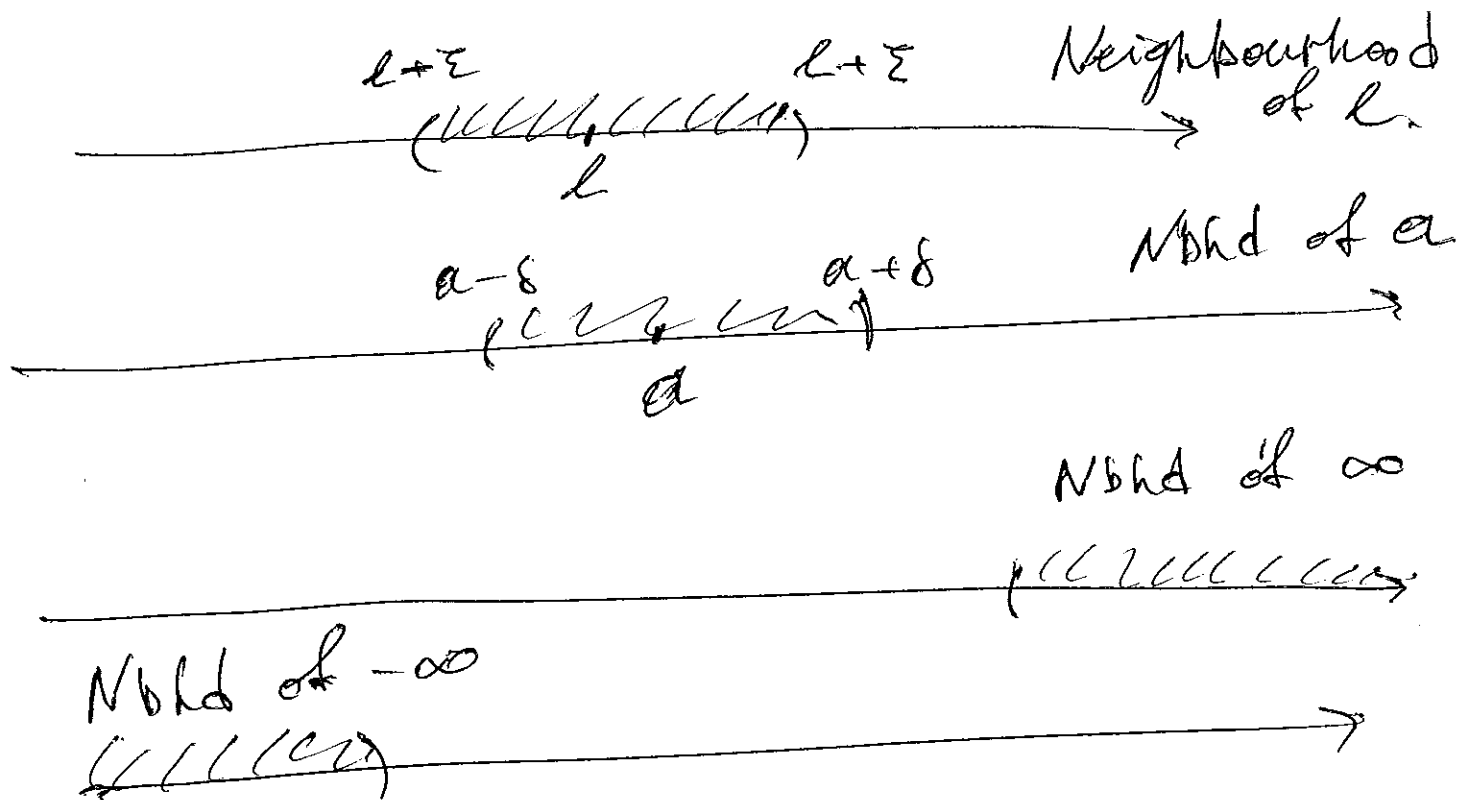 l+ε l+ε Neighbourhood
of l.
l
Nbhd of a
a-δ a+δ
a
Nbhd of ∞
Nbhd of -∞